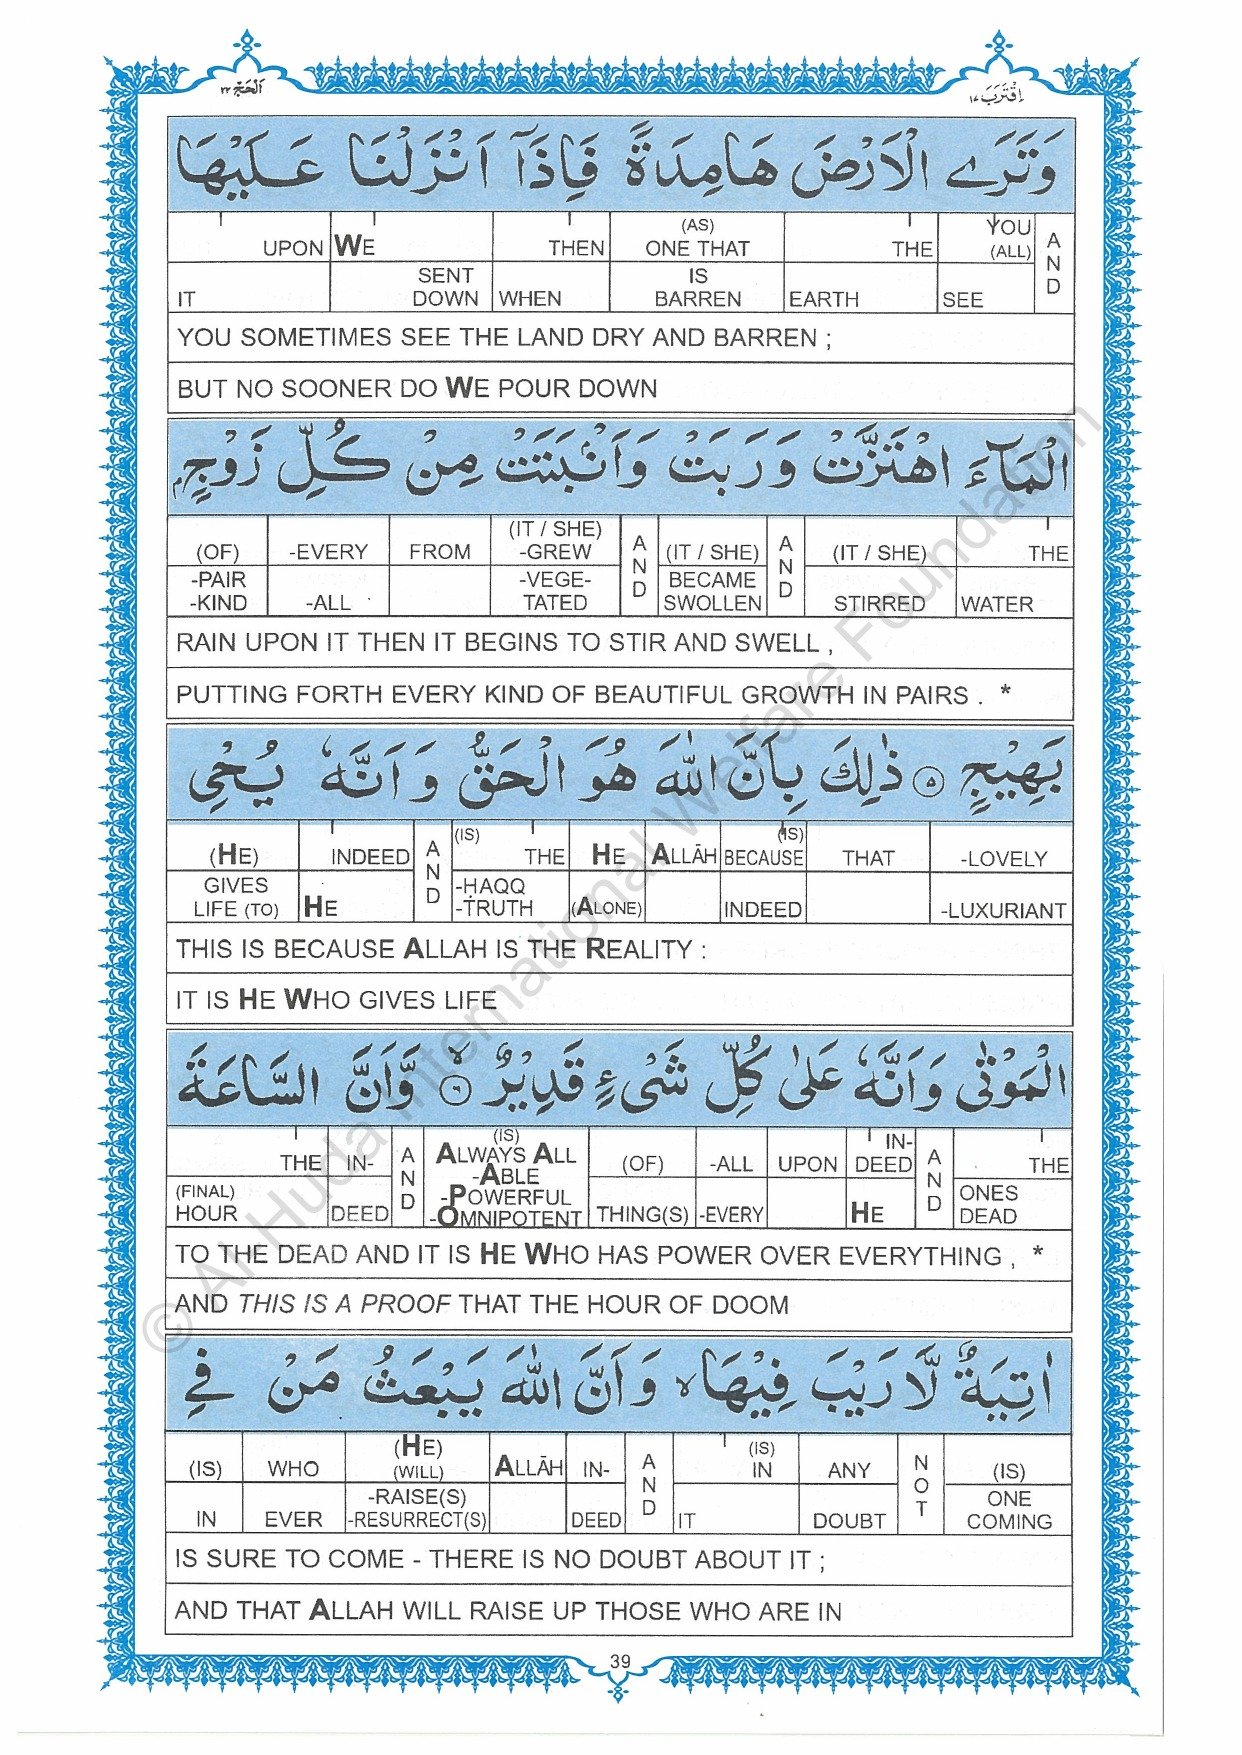 اَلْحَجّ ٢٢
اِقْتَرَبَ ١٧
وَتَرَى الْاَرْضَ هَامِدَةً فَاِذَآ اَنْزَلْنَا عَلَيْهَا
UPON WE THEN (AS) ONE THAT THE YOU (ALL) AND
IT SENT DOWN WHEN IS BARREN EARTH SEE
YOU SOMETIMES SEE THE LAND DRY AND BARREN ;
BUT NO SOONER DO WE POUR DOWN
الْمَآءَ اهْتَزَّتْ وَ رَبَتْ وَاَنْۢبَتَتْ مِنْ كُلِّ زَوْجٍۭ
(OF) -EVERY FROM (IT / SHE) -GREW AND (IT / SHE) AND (IT / SHE) THE
-PAIR -KIND -ALL -VEGE- TATED BECAME SWOLLEN STIRRED WATER
RAIN UPON IT THEN IT BEGINS TO STIR AND SWELL ,
PUTTING FORTH EVERY KIND OF BEAUTIFUL GROWTH IN PAIRS . *
بَهِيْجٍ ٥ ذٰلِكَ بِاَنَّ اللّٰهَ هُوَ الْحَقُّ وَ اَنَّهٗ يُحْيِ
(HE) INDEED AND (IS) THE HE ALLĀH BECAUSE (IS) THAT -LOVELY
GIVES LIFE (TO) HE -ḤAQQ -TRUTH (ALONE) INDEED -LUXURIANT
THIS IS BECAUSE ALLAH IS THE REALITY :
IT IS HE WHO GIVES LIFE
الْمَوْتٰى وَ اَنَّهٗ عَلٰى كُلِّ شَيْءٍ قَدِيْرٌ ۙ ٦ وَّ اَنَّ السَّاعَةَ
THE IN- AND (IS) ALWAYS ALL -ABLE (OF) -ALL UPON IN- DEED AND THE
(FINAL) HOUR DEED -POWERFUL -OMNIPOTENT THING(S) -EVERY HE ONES DEAD
TO THE DEAD AND IT IS HE WHO HAS POWER OVER EVERYTHING , *
AND THIS IS A PROOF THAT THE HOUR OF DOOM
اٰتِيَةٌ لَّا رَيْبَ فِيْهَا ۙ وَ اَنَّ اللّٰهَ يَبْعَثُ مَنْ فِي
(IS) WHO (HE) (WILL) ALLĀH IN- AND (IS) IN ANY NOT (IS)
IN EVER -RAISE(S) -RESURRECT(S) DEED IT DOUBT ONE COMING
IS SURE TO COME - THERE IS NO DOUBT ABOUT IT ;
AND THAT ALLAH WILL RAISE UP THOSE WHO ARE IN
39
© Al Huda International Welfare Foundation